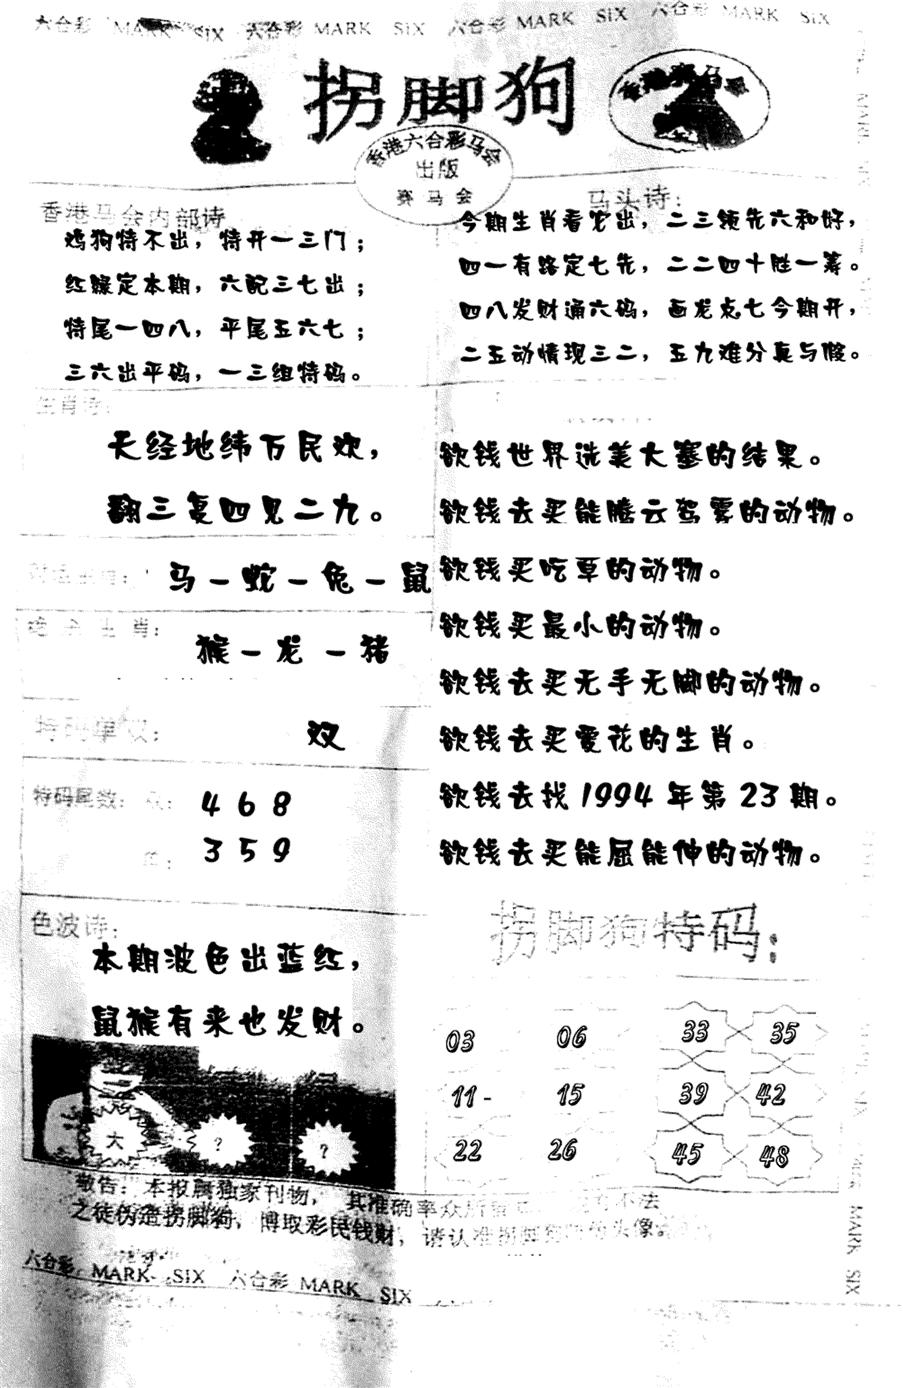 六合彩 MARK SIX 六合彩 MARK SIX 六合彩 MARK SIX 六合彩 MARK SIX
拐脚狗
香港赛马会
香港六合彩马会
出版
赛马会
香港马会内部诗
鸡狗特不出，特开一三门；
红绿定本期，六配三七出；
特尾一四八，平尾五六七；
三六出平码，一三组特码。
马头诗：
今期生肖看它出，二三领先六和好，
四一有路定七先，二二四十胜一筹。
四八发财通六码，画龙点七今期开，
二五动情现三二，五九难分真与假。
生肖诗：
天经地纬万民欢，
翻三复四见二九。
马－蛇－兔－鼠
绝杀生肖：
猴－龙－猪
特码单双：
双
特码尾数：双：
4 6 8
单：
3 5 9
欲钱世界选美大塞的结果。
欲钱去买能腾云驾雾的动物。
欲钱买吃草的动物。
欲钱买最小的动物。
欲钱去买无手无脚的动物。
欲钱去买爱花的生肖。
欲钱去找1994年第23期。
欲钱去买能屈能伸的动物。
色波诗：
本期波色出蓝红，
鼠猴有来也发财。
大 ? ?
拐脚狗特码：
03 06 33 35
11- 15 39 42
22 26 45 48
敬告：本报属独家刊物，其准确率众所
不法
之徒伪造拐脚狗，博取彩民钱财，请认准拐脚狗
头像。
六合彩 MARK SIX 六合彩 MARK SIX
MARK SIX